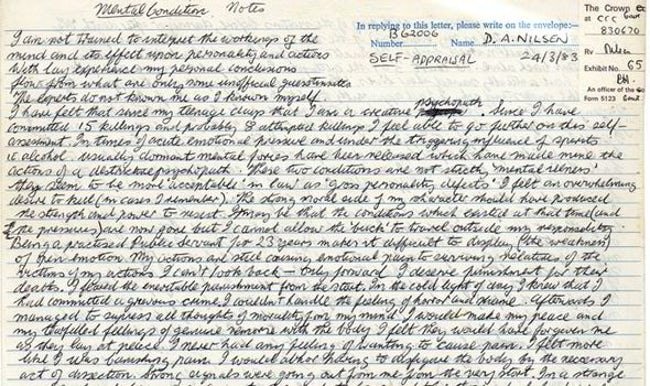 Mental Condition Notes
In replying to this letter, please write on the envelope:-
Number B62006 Name D. A. NILSEN
SELF-APPRAISAL 24/3/83
The Crown
at CCC
830670
Rv Nilsen
Exhibit No. 65
An officer of the
Form 5123
I am not trained to interpret the workings of the
mind and its effect upon personality and actions
With lay experience my personal conclusions
flow from what are only some unofficial guesstimates
The experts do not known me as I known myself.
I have felt that since my teenage days that I am a creative psychopath. Since I have
committed 15 killings and probably 8 attempted killings I feel able to go further on this self-
assessment. In times of acute emotional pressure and under the triggering influence of spirits
ie alcohol usually dormant mental forces have been released which have made mine the
actions of a destructive psychopath. These two conditions are not strictly 'mental illness'
they seem to be more 'acceptable' in law as 'gross personality defects'. I felt an overwhelming
desire to kill (in cases I remember). The strong side of my character should have produced
the strength and power to resist. It may be that the conditions which existed at that time (and
the pressures) are now gone but I cannot allow the 'buck' to travel outside my responsibility
Being a practised Public Servant for 23 years makes it difficult to display (the weakness)
of then emotion. My actions are still causing emotional pain to surviving relatives of the
victims of my actions I can't look back — only forward I deserve punishment for their
deaths. I feared the inevitable punishment from the start. In the cold light of day I knew that I
had committed a grievous crime I couldn't handle the feeling of horror and shame. Afterwards I
managed to supress all thoughts of morality from my mind I would make my peace and
my feelings of genuine remorse with the body I felt they would have forgiven me
as they lay at peace. I never had any feeling of wanting to cause pain. I felt more
like I was banishing pain. I would abhor having to disfigure the body by the necessary
act of dissection. Strong signals were going out from me from the very start. In a strange